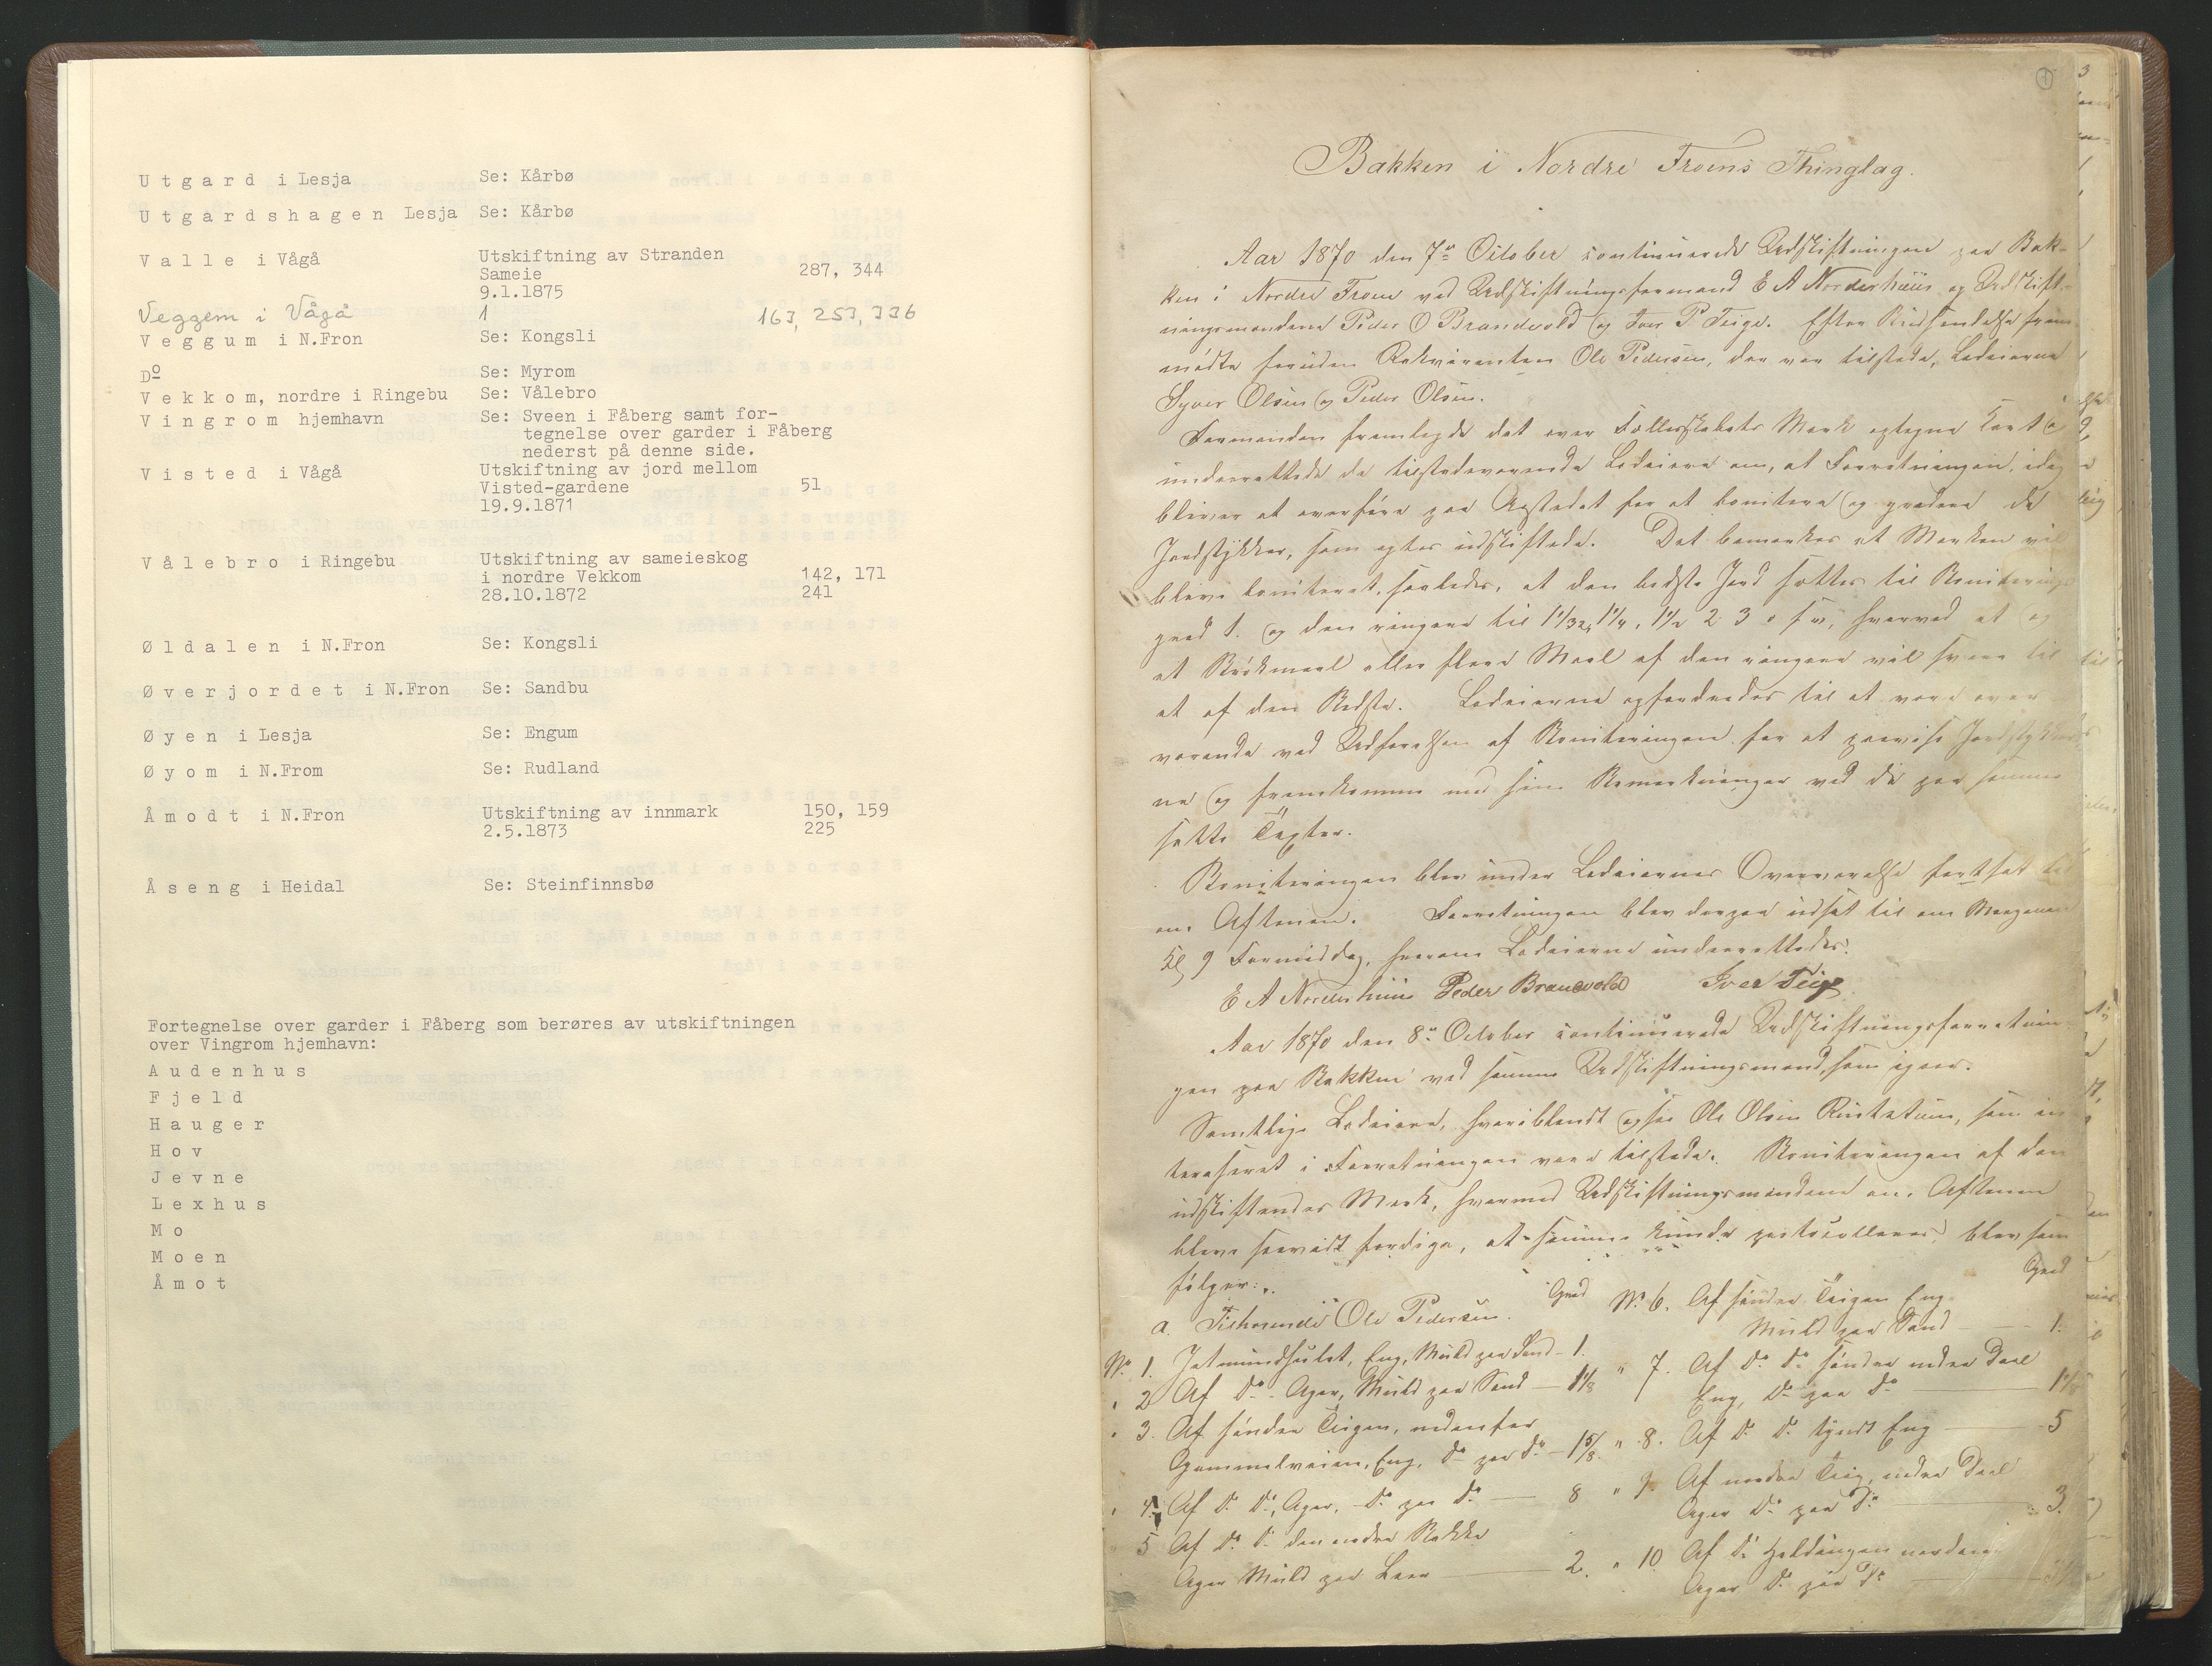 Utgard i Lesja Se: Kårbø
Utgardshagen Lesja Se: Kårbø
Valle i Vågå Utskiftning av Stranden
Sameie 287, 344
9.1.1875
Veggem i Vågå 1 163, 253, 336
Veggum i N.Fron Se: Kongsli
Dº Se: Myrom
Vekkom, nordre i Ringebu Se: Vålebro
Vingrom hjemhavn Se: Sveen i Fåberg samt for-
tegnelse over garder i Fåberg
nederst på denne side.
Visted i Vågå Utskiftning av jord mellom
Visted-gardene 51
19.9.1871
Vålebro i Ringebu Utskiftning av sameieskog
i nordre Vekkom 142, 171
28.10.1872 241
Øldalen i N.Fron Se: Kongsli
Øverjordet i N.Fron Se: Sandbu
Øyen i Lesja Se: Engum
Øyom i N.From Se: Rudland
Åmodt i N.Fron Utskiftning av innmark 150, 159
2.5.1873 225
Åseng i Heidal Se: Steinfinnsbø
Fortegnelse over garder i Fåberg som berøres av utskiftningen
over Vingrom hjemhavn:
Audenhus
Fjeld
Hauger
Hov
Jevne
Lexhus
Mo
Moen
Åmot
1
Bakken i Nordre Froens Thinglag.
Aar 1870 den 7de October continuerede Udskiftningen paa Bak-
ken i Nordre Froen ved Udskiftningsformand E A Norderhuus og Udskift-
ningsmændene Peder O Brandvold og Iver P Teige. Efter
mødte foruden Rekvirenten Ole Pedersen, der var tilstede, Lodeierne
Syver Olsen og Peder Olsen.
Formanden fremlagde det over Fællesskabets Mark optagne Kart
underrettede de tilstedeværende Lodeiere om, at Forretningen idag
bliver at overføre paa Aastedet for at bonitere og gradere de
Jordstykker, som agtes udskiftede. Det bemærkes at Marken vil
blive boniteret saaledes, at den bedste Jord sættes til Boniterings
grad 1. og den ringere til 1 1/32, 1 1/4, 1 1/2 2 3 o s v, hvorved et og
et Brøkmaal eller flere Maal af den ringere vil svare til
et af den Bedste. Lodeierne opfordredes til at være over
værende ved Udførelsen af Boniteringen for at paavise Jordstykker
ne og fremkomme med sine Bemærkninger ved de paa samme
satte Taxter.
Boniteringen blev under Lodeiernes Overværelse fortsat til
om Aftenen. Forretningen blev derpaa udsat til om Morgenen
Kl 9 Formiddag, hvorom Lodeierne underrettedes.
E A Norderhuus Peder Brandvold Iver Teige
Aar 1870 den 8de October continuerede Udskiftningsforretnin
gen paa Bakken ved samme Udskiftningsmænd, som igaar.
Samtlige Lodeiere, hvoriblandt ogsaa Ole Olsen som in
teresseret i Forretningen vare tilstede. Boniteringen af den
udskiftendes Mark, hvormed Udskiftningsmændene om Aftenen
bleve saavidt færdige, at samme kunde protocolleres, blev som
følger:
a. Tilhørende Ole Pedersen. Grad
No 1. Eng, Muld paa Sand - 1.
" 2 Af Do Ager, Muld paa Sand — 1 1/8
" 3. Af søndre Teigen, nedenfor
Gammelveien, Eng, Do paa Do — 1 5/8.
" 4. Af Do Do, Ager, Do paa Do — 8
5 Af Do Do den nedre Bakke
Ager Muld paa Leer — 2.
Grad
No 6. Af søndre Teigen Eng
Muld paa Sand — 1.
" 7. Af Do Do søndre nedre Deel
Eng, Do paa Do — 1 1/8
" 8. Af Do Do tyndt Eng — 5
" 9. Af nordre Teig, nedre Deel
Ager Do paa Do — 3.
" 10 Af Do Heldingen nordenfor
Ager Do paa Do